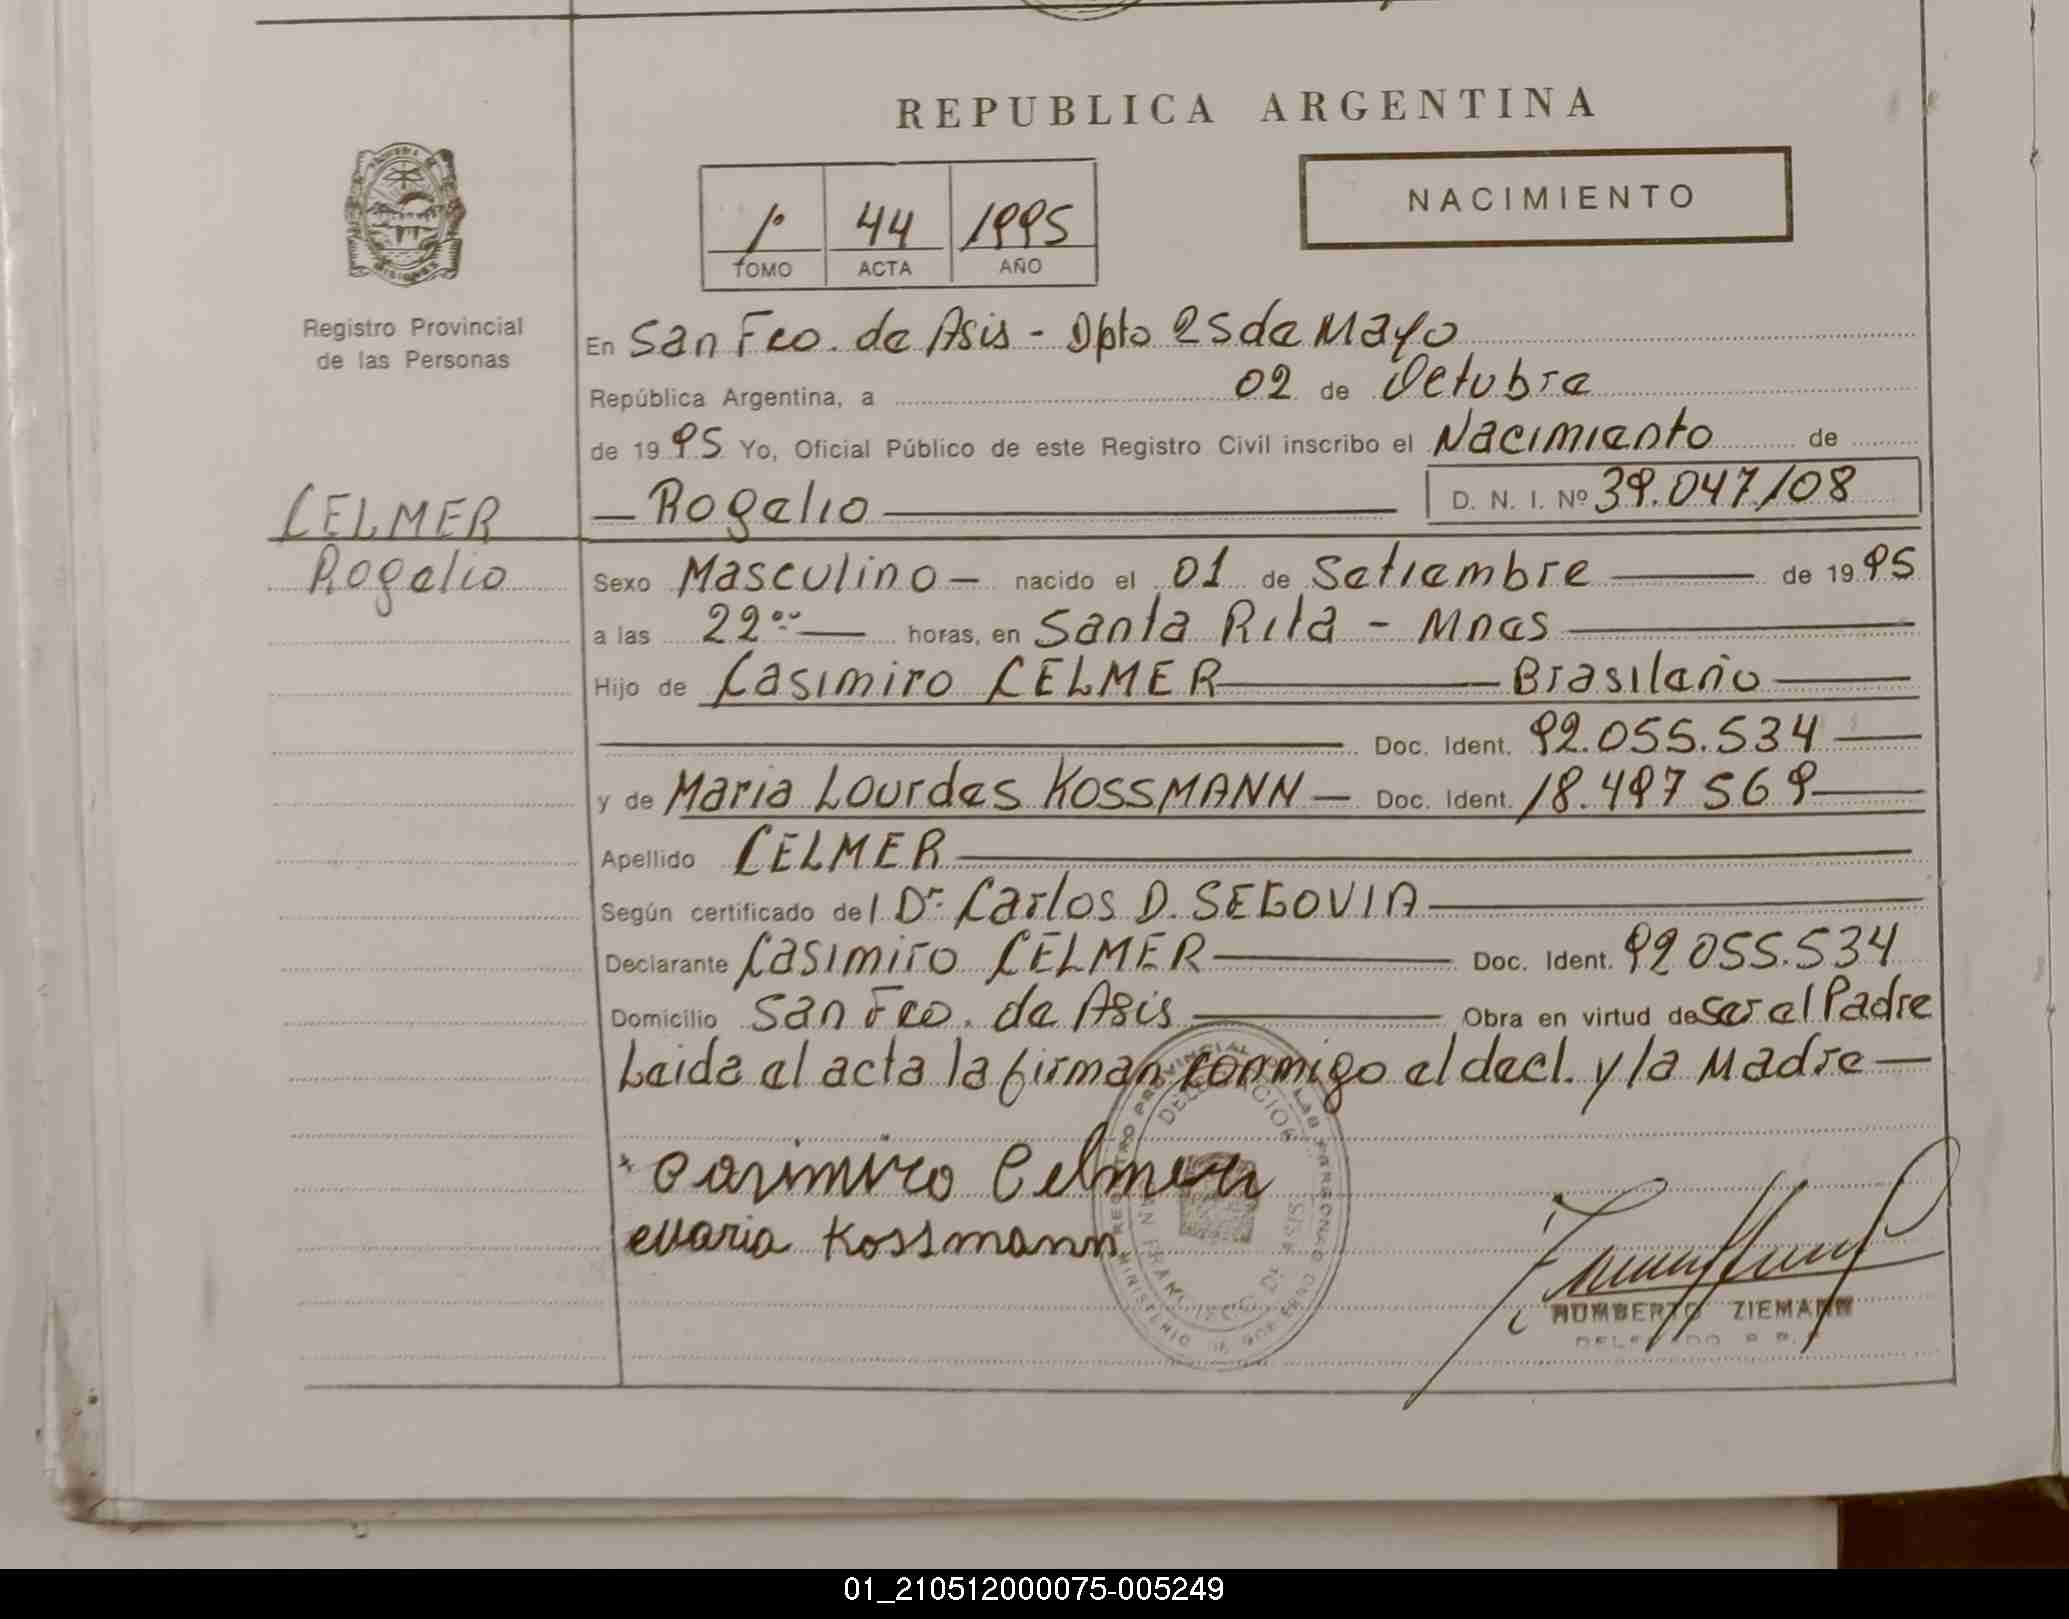 REPUBLICA ARGENTINA
NACIMIENTO
1º 44 1995
TOMO ACTA AÑO
Registro Provincial
de las Personas
En San Fco. de Asis - Dpto 25 de Mayo
República Argentina, a 02 de Octubre
de 1995 Yo, Oficial Público de este Registro Civil inscribo el Nacimiento de
CELMER
Rogelio
Rogelio D. N. I. Nº 39.047/08
Sexo Masculino - nacido el 01 de Setiembre de 1995
a las 22 horas, en Santa Rita - Mnes
Hijo de Casimiro CELMER Brasileño
Doc. Ident. 92.055.534
y de Maria Lourdes KOSSMANN - Doc. Ident. 18.497 569
Apellido CELMER
Según certificado del Dr. Carlos D. SEGOVIA
Declarante Casimiro CELMER Doc. Ident. 92 055.534
Domicilio San Fco. de Asis Obra en virtud de ser el Padre
Leida el acta la firman conmigo el decl. y la Madre
Casimiro Celmer
Maria Kossmann
HUMBERTO ZIEMANN
01_210512000075-005249